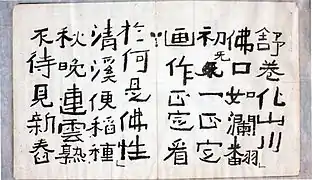 舒卷化山川
佛口如瀾翻
初无一正定
画作正定看
於何是佛性」
清溪便稻種
秋晚連雲熟
不待見新舂